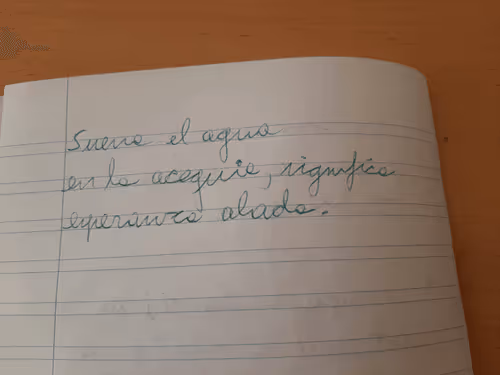 Suena el agua
en la acequia, significa
esperanza alada.